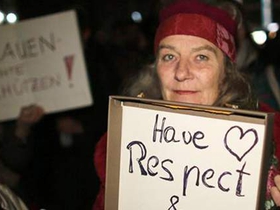 RAUEN-
CHÜTZEN!
Have ♡
Respect
&